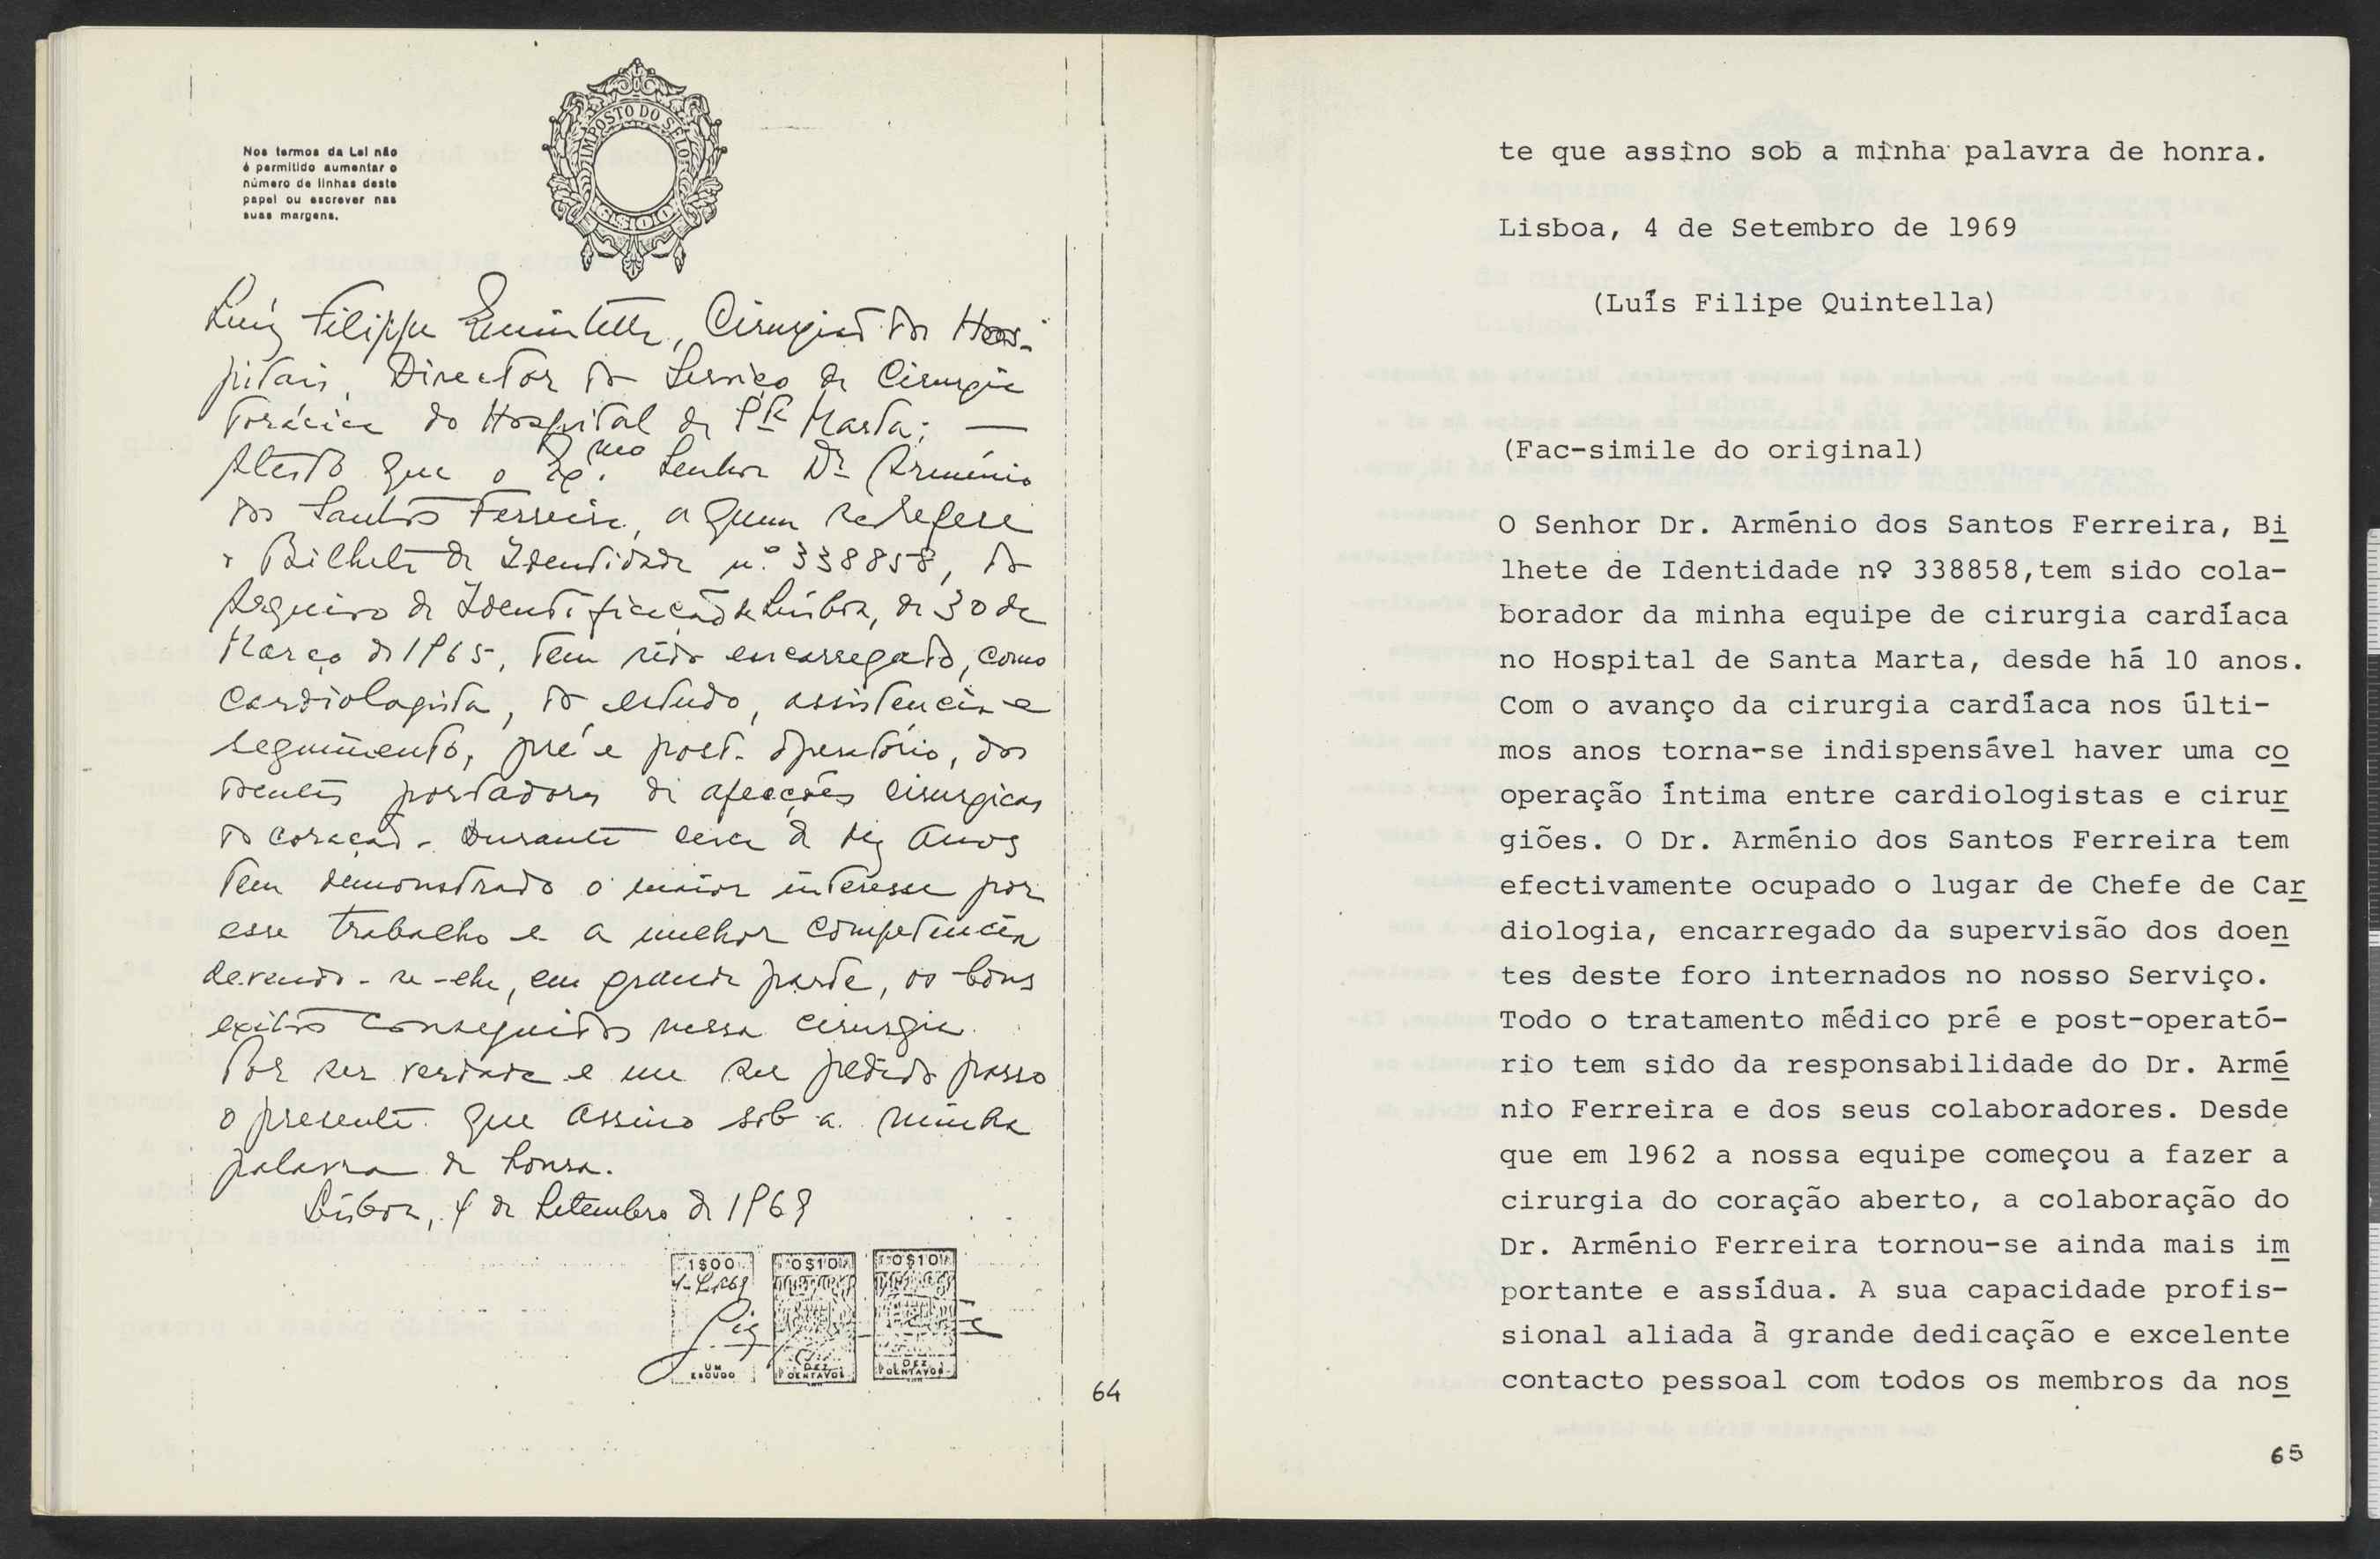 Nos termos da Lei não
é permitido aumentar o
número de linhas deste
papel ou escrever nas
suas margens.
IMPOSTO DO SELO
6$00
Luiz Filippe Quintella, Cirurgião dos Hos-
pitais, Director do Serviço de Cirurgia
Torácica do Hospital de Sta Marta; —
Atesto que o Exmo. Senhor Dr. Arménio
dos Santos Ferreira, a quem se refere
o Bilhete de Identidade n.º 338858, do
Arquivo de Identificação de Lisboa, de 30 de
Março de 1965, tem sido encarregado, como
cardiologista, do estudo, assistencia e
seguimento, pré e post-operatório, dos
doentes portadores de afecções cirurgicas
do coração. Durante cerca de dez anos
tem demonstrado o maior interesse por
esse trabalho e a melhor competencia
devendo-se-lhe, em grande parte, os bons
exitos conseguidos nessa cirurgia.
Por ser verdade e me ser pedido passo
o presente que assino sob a minha
palavra de honra.
Lisboa, 4 de Setembro de 1969
1$00 0$10 0$10
UM ESCUDO DEZ CENTAVOS DEZ CENTAVOS
64
te que assino sob a minha palavra de honra.
Lisboa, 4 de Setembro de 1969
(Luís Filipe Quintella)
(Fac-simile do original)
O Senhor Dr. Arménio dos Santos Ferreira, Bi
lhete de Identidade nº 338858,tem sido cola-
borador da minha equipe de cirurgia cardíaca
no Hospital de Santa Marta, desde há 10 anos.
Com o avanço da cirurgia cardíaca nos últi-
mos anos torna-se indispensável haver uma co
operação íntima entre cardiologistas e cirur
giões. O Dr. Arménio dos Santos Ferreira tem
efectivamente ocupado o lugar de Chefe de Car
diologia, encarregado da supervisão dos doen
tes deste foro internados no nosso Serviço.
Todo o tratamento médico pré e post-operató-
rio tem sido da responsabilidade do Dr. Armé
nio Ferreira e dos seus colaboradores. Desde
que em 1962 a nossa equipe começou a fazer a
cirurgia do coração aberto, a colaboração do
Dr. Arménio Ferreira tornou-se ainda mais im
portante e assídua. A sua capacidade profis-
sional aliada à grande dedicação e excelente
contacto pessoal com todos os membros da nos
65